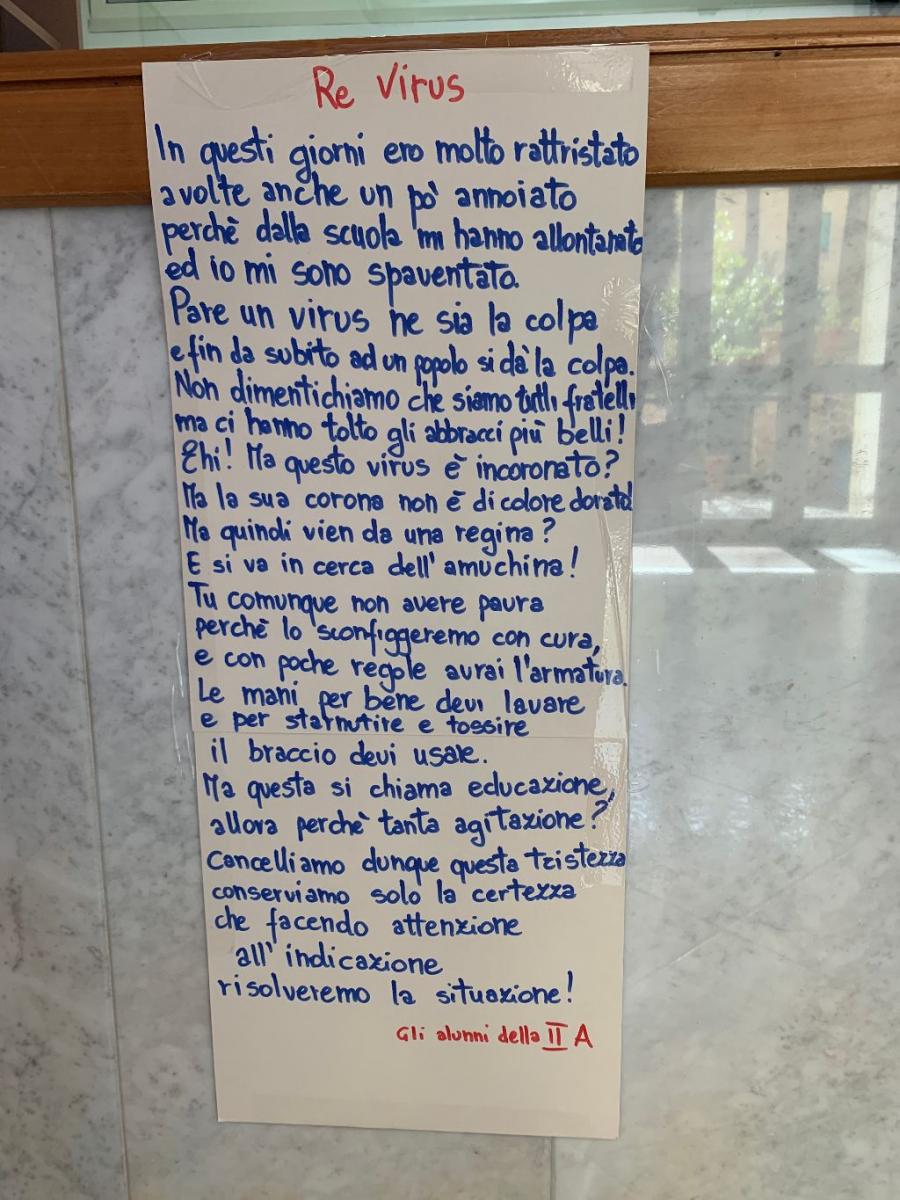 Re Virus
In questi giorni ero molto rattristato
a volte anche un pò annoiato
perchè dalla scuola mi hanno allontanato
ed io mi sono spaventato.
Pare un virus ne sia la colpa
e fin da subito ad un popolo si dà la colpa.
Non dimentichiamo che siamo tutti fratelli
ma ci hanno tolto gli abbracci più belli!
Ehi! Ma questo virus è incoronato?
Ma la sua corona non è di colore dorato!
Ma quindi vien da una regina?
E si va in cerca dell'amuchina!
Tu comunque non avere paura
perchè lo sconfiggeremo con cura,
e con poche regole avrai l'armatura.
Le mani per bene devi lavare
e per starnutire e tossire
il braccio devi usare.
Ma questa si chiama educazione,
allora perchè tanta agitazione?
Cancelliamo dunque questa tristezza
conserviamo solo la certezza
che facendo attenzione
all'indicazione
risolveremo la situazione!
Gli alunni della II A